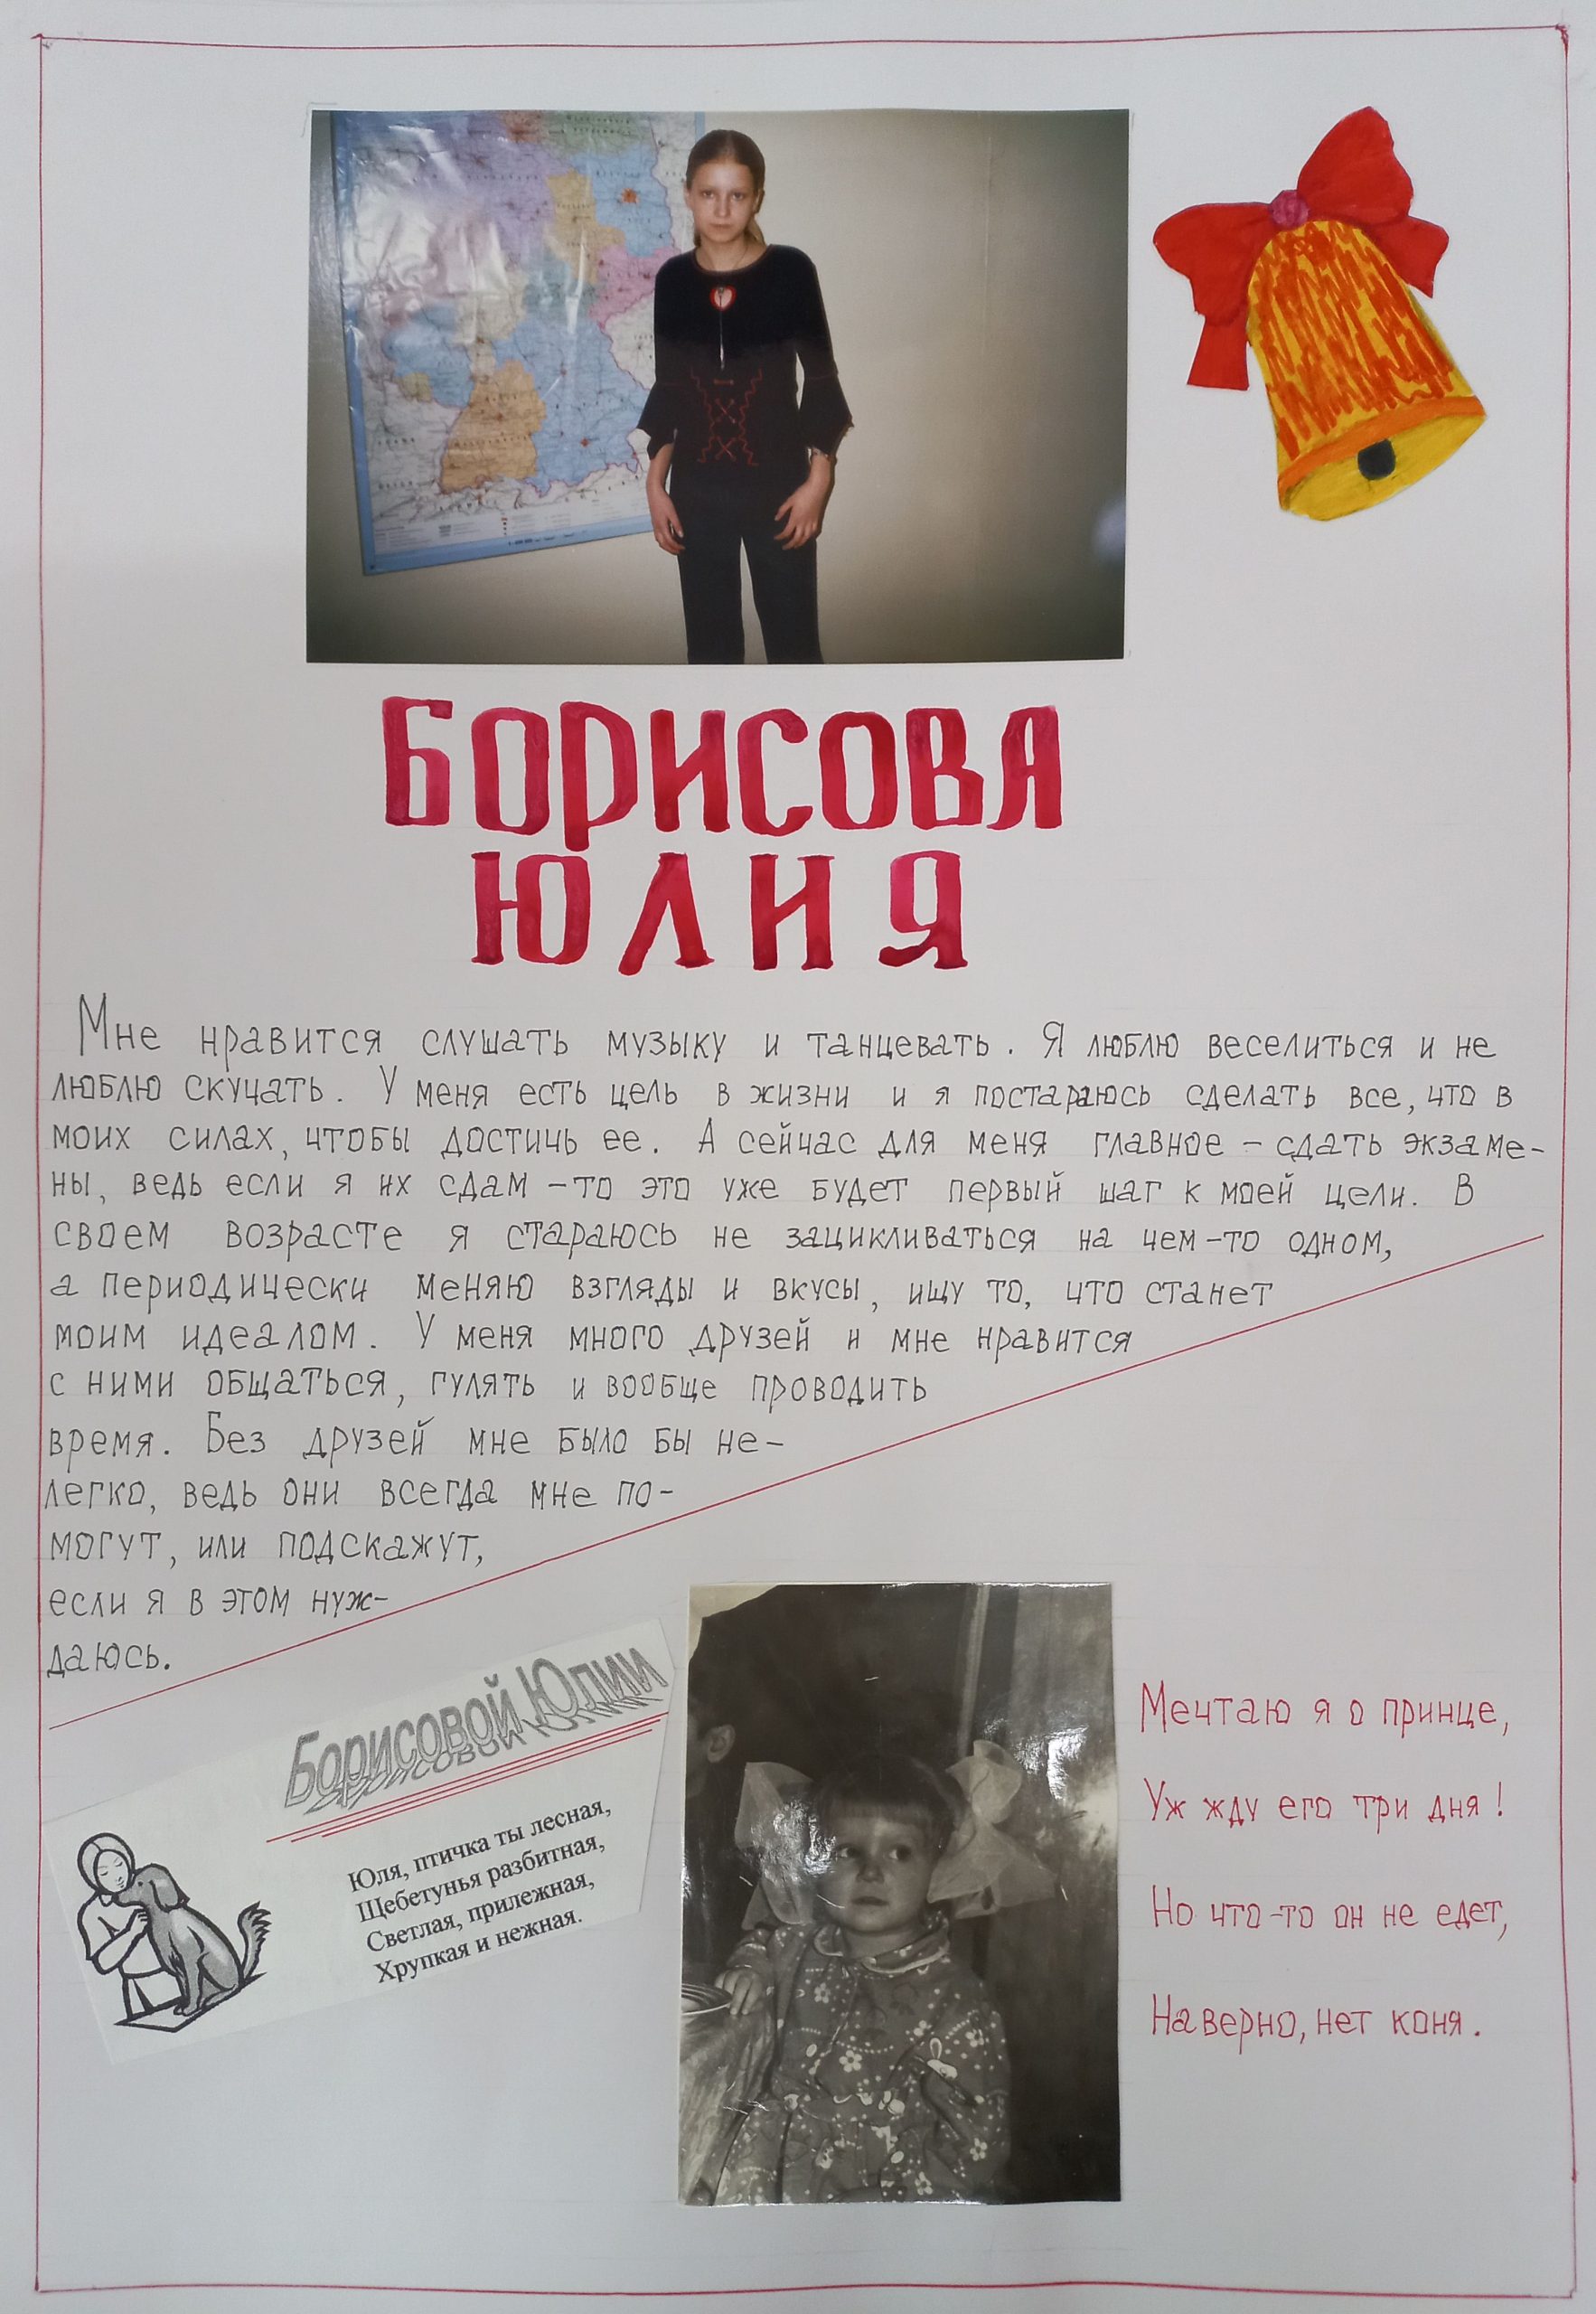 БОРИСОВА
ЮЛИЯ
Мне нравится слушать музыку и танцевать. Я люблю веселиться и не
люблю скучать. У меня есть цель в жизни и я постараюсь сделать все, что в
моих силах, чтобы достичь ее. А сейчас для меня главное – сдать экзаме-
ны, ведь если я их сдам – то это уже будет первый шаг к моей цели. В
своем возрасте я стараюсь не зацикливаться на чем-то одном,
а периодически меняю взгляды и вкусы, ищу то, что станет
моим идеалом. У меня много друзей и мне нравится
с ними общаться, гулять и вообще проводить
время. Без друзей мне было бы не-
легко, ведь они всегда мне по-
могут, или подскажут,
если я в этом нуж-
даюсь.
Борисовой Юлии
Юля, птичка ты лесная,
Щебетунья разбитная,
Светлая, прилежная,
Хрупкая и нежная.
Мечтаю я о принце,
Уж жду его три дня!
Но что-то он не едет,
Наверно, нет коня.